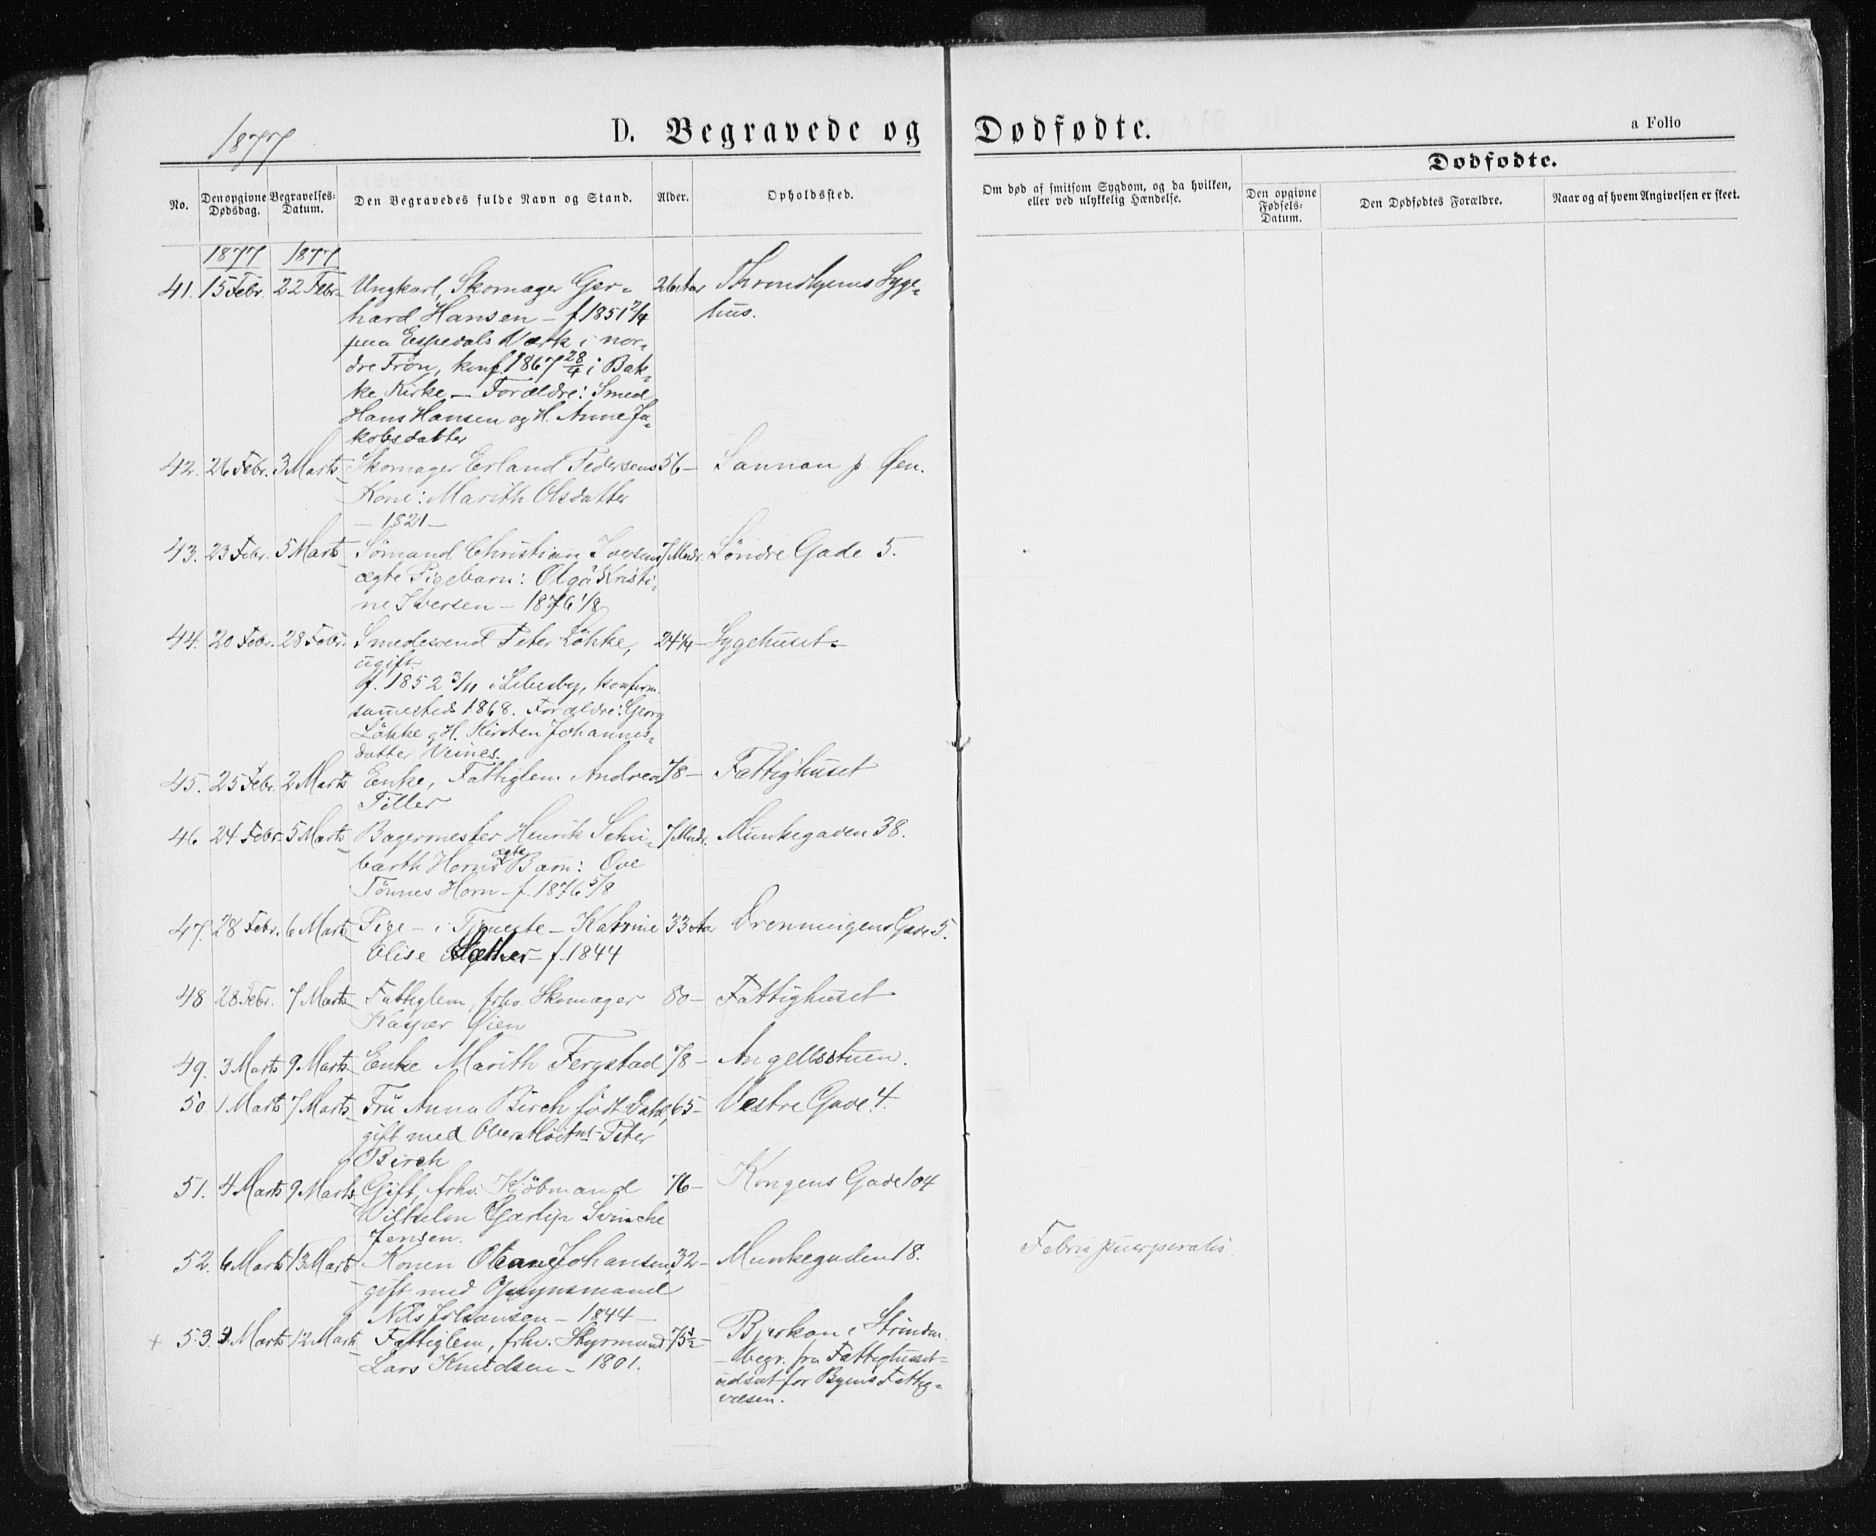 1877
D. Begravede og Dødfødte.
a Folio
No.
Den opgivne Dødsdag.
Begravelses-Datum.
Den Begravedes fulde Navn og Stand.
Alder.
Opholdssted.
Om død af smitsom Sygdom, og da hvilken,
eller ved ulykkelig Hændelse.
Dødfødte.
Den opgivne Fødsels-Datum.
Den Dødfødtes Forældre.
Naar og af hvem Angivelsen er skeet.
1877 1877
41. 15 Febr. 22 Febr. Ungkarl, Skomager Ger- 26 Aar Throndhjems Syge-
hard Hansen - f 1851 2/4 hus.
paa Espedals Værk i nor-
dre Fron, konf. 1867 28/4 i Bak-
ke Kirke - Forældre: Smed
Hans Hansen og H. Anne Ja-
kobsdatter
42. 26 Febr. 3 Marts Skomager Erland Pedersens 56 - Sannan p. Øen.
Kone: Marith Olsdatter
- 1821 -
43. 23 Febr. 5 Marts Sömand Christian Iversens 7 Mndr. Söndre Gade 5.
ægte Pigebarn: Olga Kristi-
ne Iversen - 1876 1/8
44. 20 Febr. 28 Febr. Smedesvend Peter Lökke, 24 1/4 - Sygehuset -
ugift.
f. 1852 3/11 i Lebesby, konfirm.
sammesteds 1868. Forældre: Georg
Lökke g H. Kirsten Johannes-
datter Veines.
45. 25 Febr. 2 Marts Enke, Fattiglem Andrea 78 - Fattighuset
Tiller
46 24 Febr. 5 Marts Bagermester Henrik Schu- 7 Mndr. Munkegaden 38.
barth Horns ægte Barn: Ove
Tönnes Horn - f. 1876 5/8
47. 28 Febr. 6 Marts Pige - i Tjeneste - Katrine 33 Aar Dronningens Gade 5.
Olise Sæther - f. 1844
48 28 Febr. 7 Marts Fattiglem, frhv. Skomager 80 - Fattighuset
Kasper Øien
49. 3 Marts 9 Marts Enke Marith Fergstad 78 - Angellsstuen.
50. 1 Marts 7 Marts Fru Anna Birch født Dahl, 65 - Vestre Gade 4.
gift med Oberstløitn. Peter
Birch
51. 4 Marts 9 Marts Gift, frhv. Kjöbmand 76 - Kongens Gade 104
Vilhelm Garlip Svincke
Jensen.
52. 6 Marts 13 Marts Konen Oleane Johansen, 32 - Munkegaden 18. Febris puerperalis.
gift med Opsynsmand
Nils Johansen - 1844 -
+ 53. 3 Marts 12 Marts Fattiglem, frhv. Styrmand 75 1/2 - Bjerkan i Strinden
Lars Knudsen - 1801. - begr. fra Fattighuset -
udsat for Byens Fattig-
væsen.